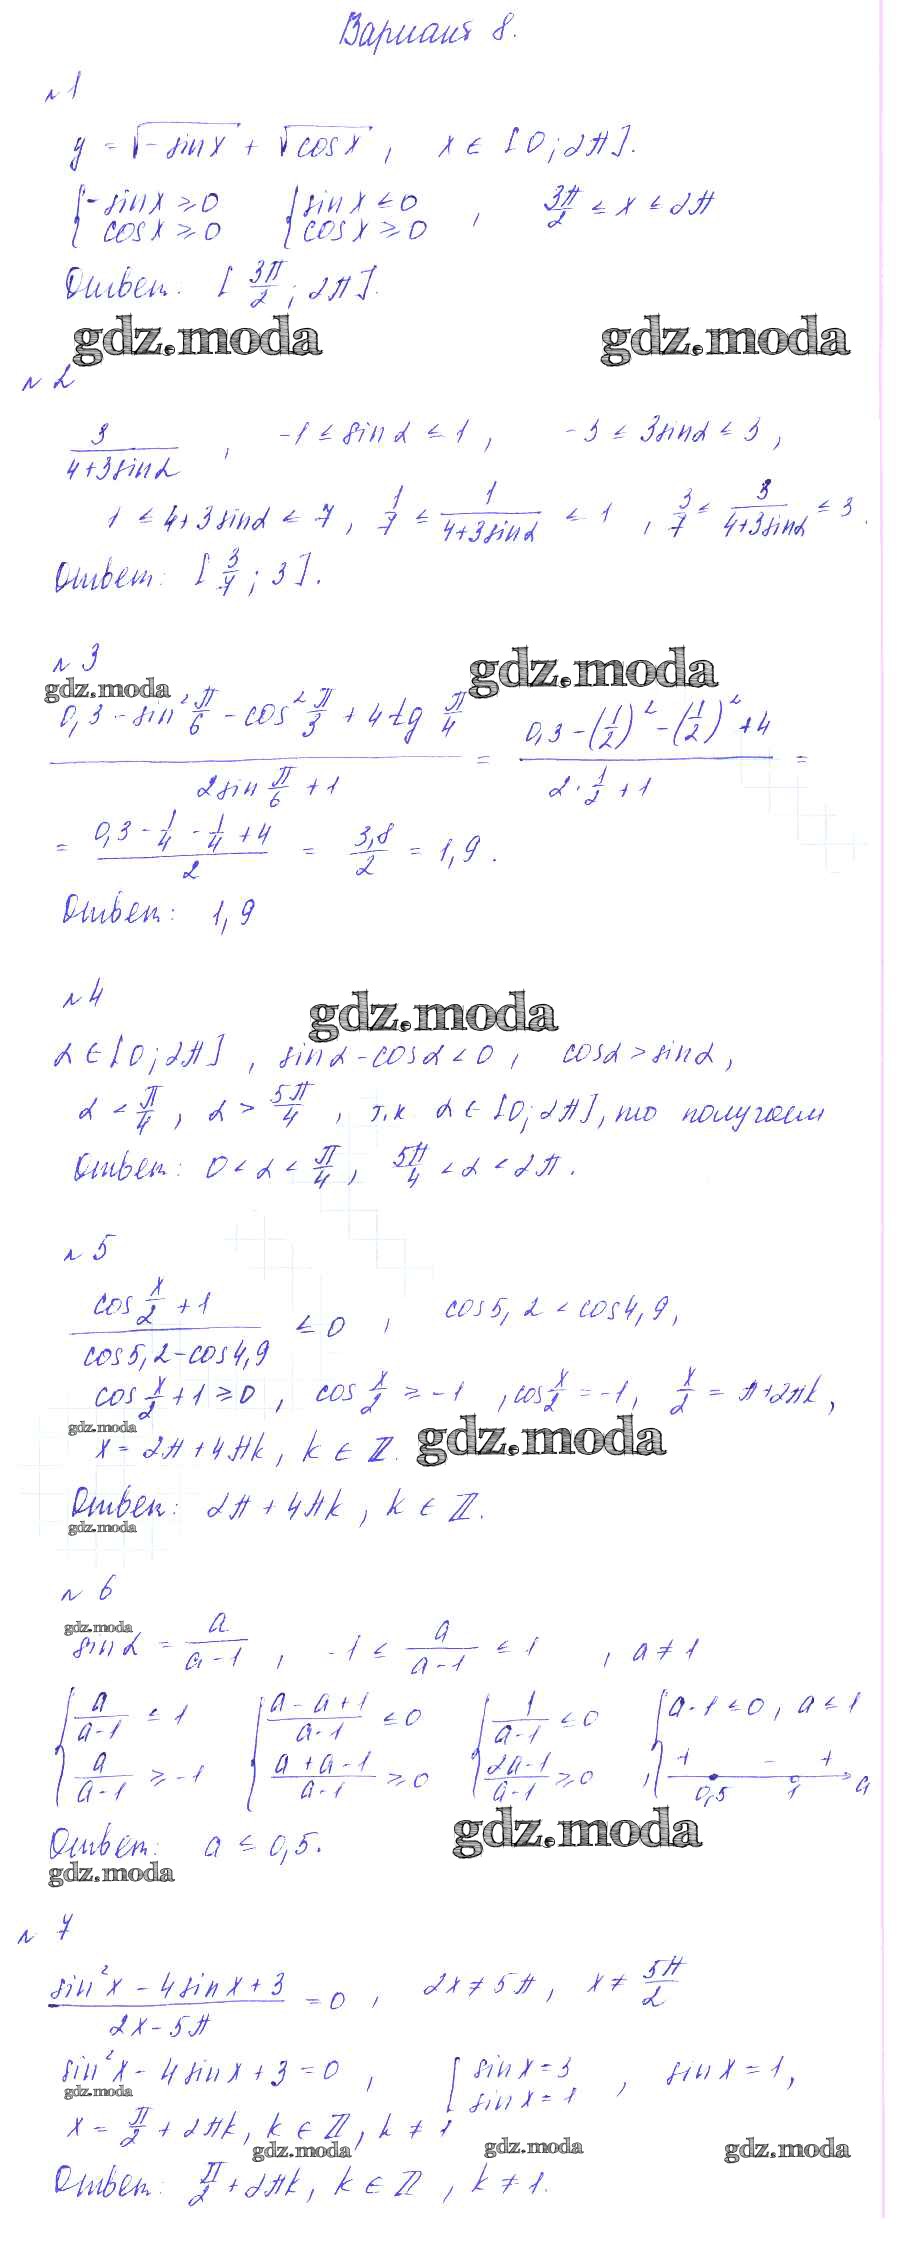 Вариант 8.
№1
y = √-sinx + √cosx, x ∈ [0; 2π].
{-sinx ≥ 0 {sinx ≤ 0 , 3π/2 ≤ x ≤ 2π
cosx ≥ 0 cosx ≥ 0
Ответ: [3π/2; 2π].
gdz.moda gdz.moda
№2
3/(4+3sinα) , -1 ≤ sinα ≤ 1, -3 ≤ 3sinα ≤ 3,
1 ≤ 4+3sinα ≤ 7, 1/7 ≤ 1/(4+3sinα) ≤ 1 , 3/7 ≤ 3/(4+3sinα) ≤ 3.
Ответ: [3/7; 3].
№3
gdz.moda gdz.moda
(0,3 - sin² π/6 - cos² π/3 + 4tg π/4)/(2sin π/6 + 1) = (0,3 - (1/2)² - (1/2)² + 4)/(2·1/2 + 1) =
= (0,3 - 1/4 - 1/4 + 4)/2 = 3,8/2 = 1,9.
Ответ: 1,9
№4
gdz.moda
α ∈ [0; 2π] , sinα - cosα < 0, cosα > sinα,
α < π/4, α > 5π/4 , т.к α ∈ [0; 2π], то получаем
Ответ: 0 < α < π/4, 5π/4 < α < 2π.
№5
(cos x/2 + 1)/(cos5,2 - cos4,9) ≤ 0 , cos5,2 < cos4,9,
cos x/2 + 1 ≥ 0, cos x/2 ≥ -1 , cos x/2 = -1, x/2 = π+2πk,
gdz.moda gdz.moda
x = 2π + 4πk, k ∈ Z.
Ответ: 2π + 4πk, k ∈ Z.
gdz.moda
№6
gdz.moda
sinα = a/(a-1) , -1 ≤ a/(a-1) ≤ 1 , a ≠ 1
{a/(a-1) ≤ 1 {(a-a+1)/(a-1) ≤ 0 {1/(a-1) ≤ 0 {a-1 ≤ 0, a ≤ 1
a/(a-1) ≥ -1 (a+a-1)/(a-1) ≥ 0 (2a-1)/(a-1) ≥ 0 , + - +
0,5 1 a
Ответ: a ≤ 0,5.
gdz.moda gdz.moda
№7
(sin²x - 4sinx + 3)/(2x - 5π) = 0 , 2x ≠ 5π, x ≠ 5π/2
sin²x - 4sinx + 3 = 0 , [sinx = 3 , sinx = 1,
sinx = 1
gdz.moda
x = π/2 + 2πk, k ∈ Z, k ≠ 1
gdz.moda gdz.moda gdz.moda
Ответ: π/2 + 2πk, k ∈ Z , k ≠ 1.